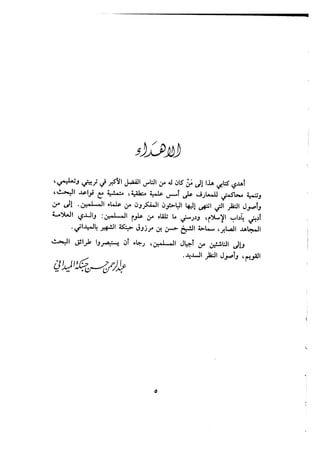 الإهداء
أهدي كتابي هذا إلى مَنْ كان له من الناس الفضل الأكبر في تربيتي وتعليمي،
وتنمية محاكمتي للمعارف على أسس علمية منطقية، متمشية مع قواعد البحث،
وأصول النظر التي انتهى إليها الباحثون المفكرون من علماء المسلمين. إلى من
أدبني بآداب الإسلام، ودرسني ما تلقاه من علوم المسلمين: والدي العلامة
المجاهد الصابر، سماحة الشيخ حسن بن مرزوق حبنكة الشهير بالميداني.
وإلى الناشئين من أجيال المسلمين، رجاء أن يستبصروا طرائق البحث
القويم، وأصول النظر السديد.
عبد الرحمن حسن حبنكة الميداني
٥